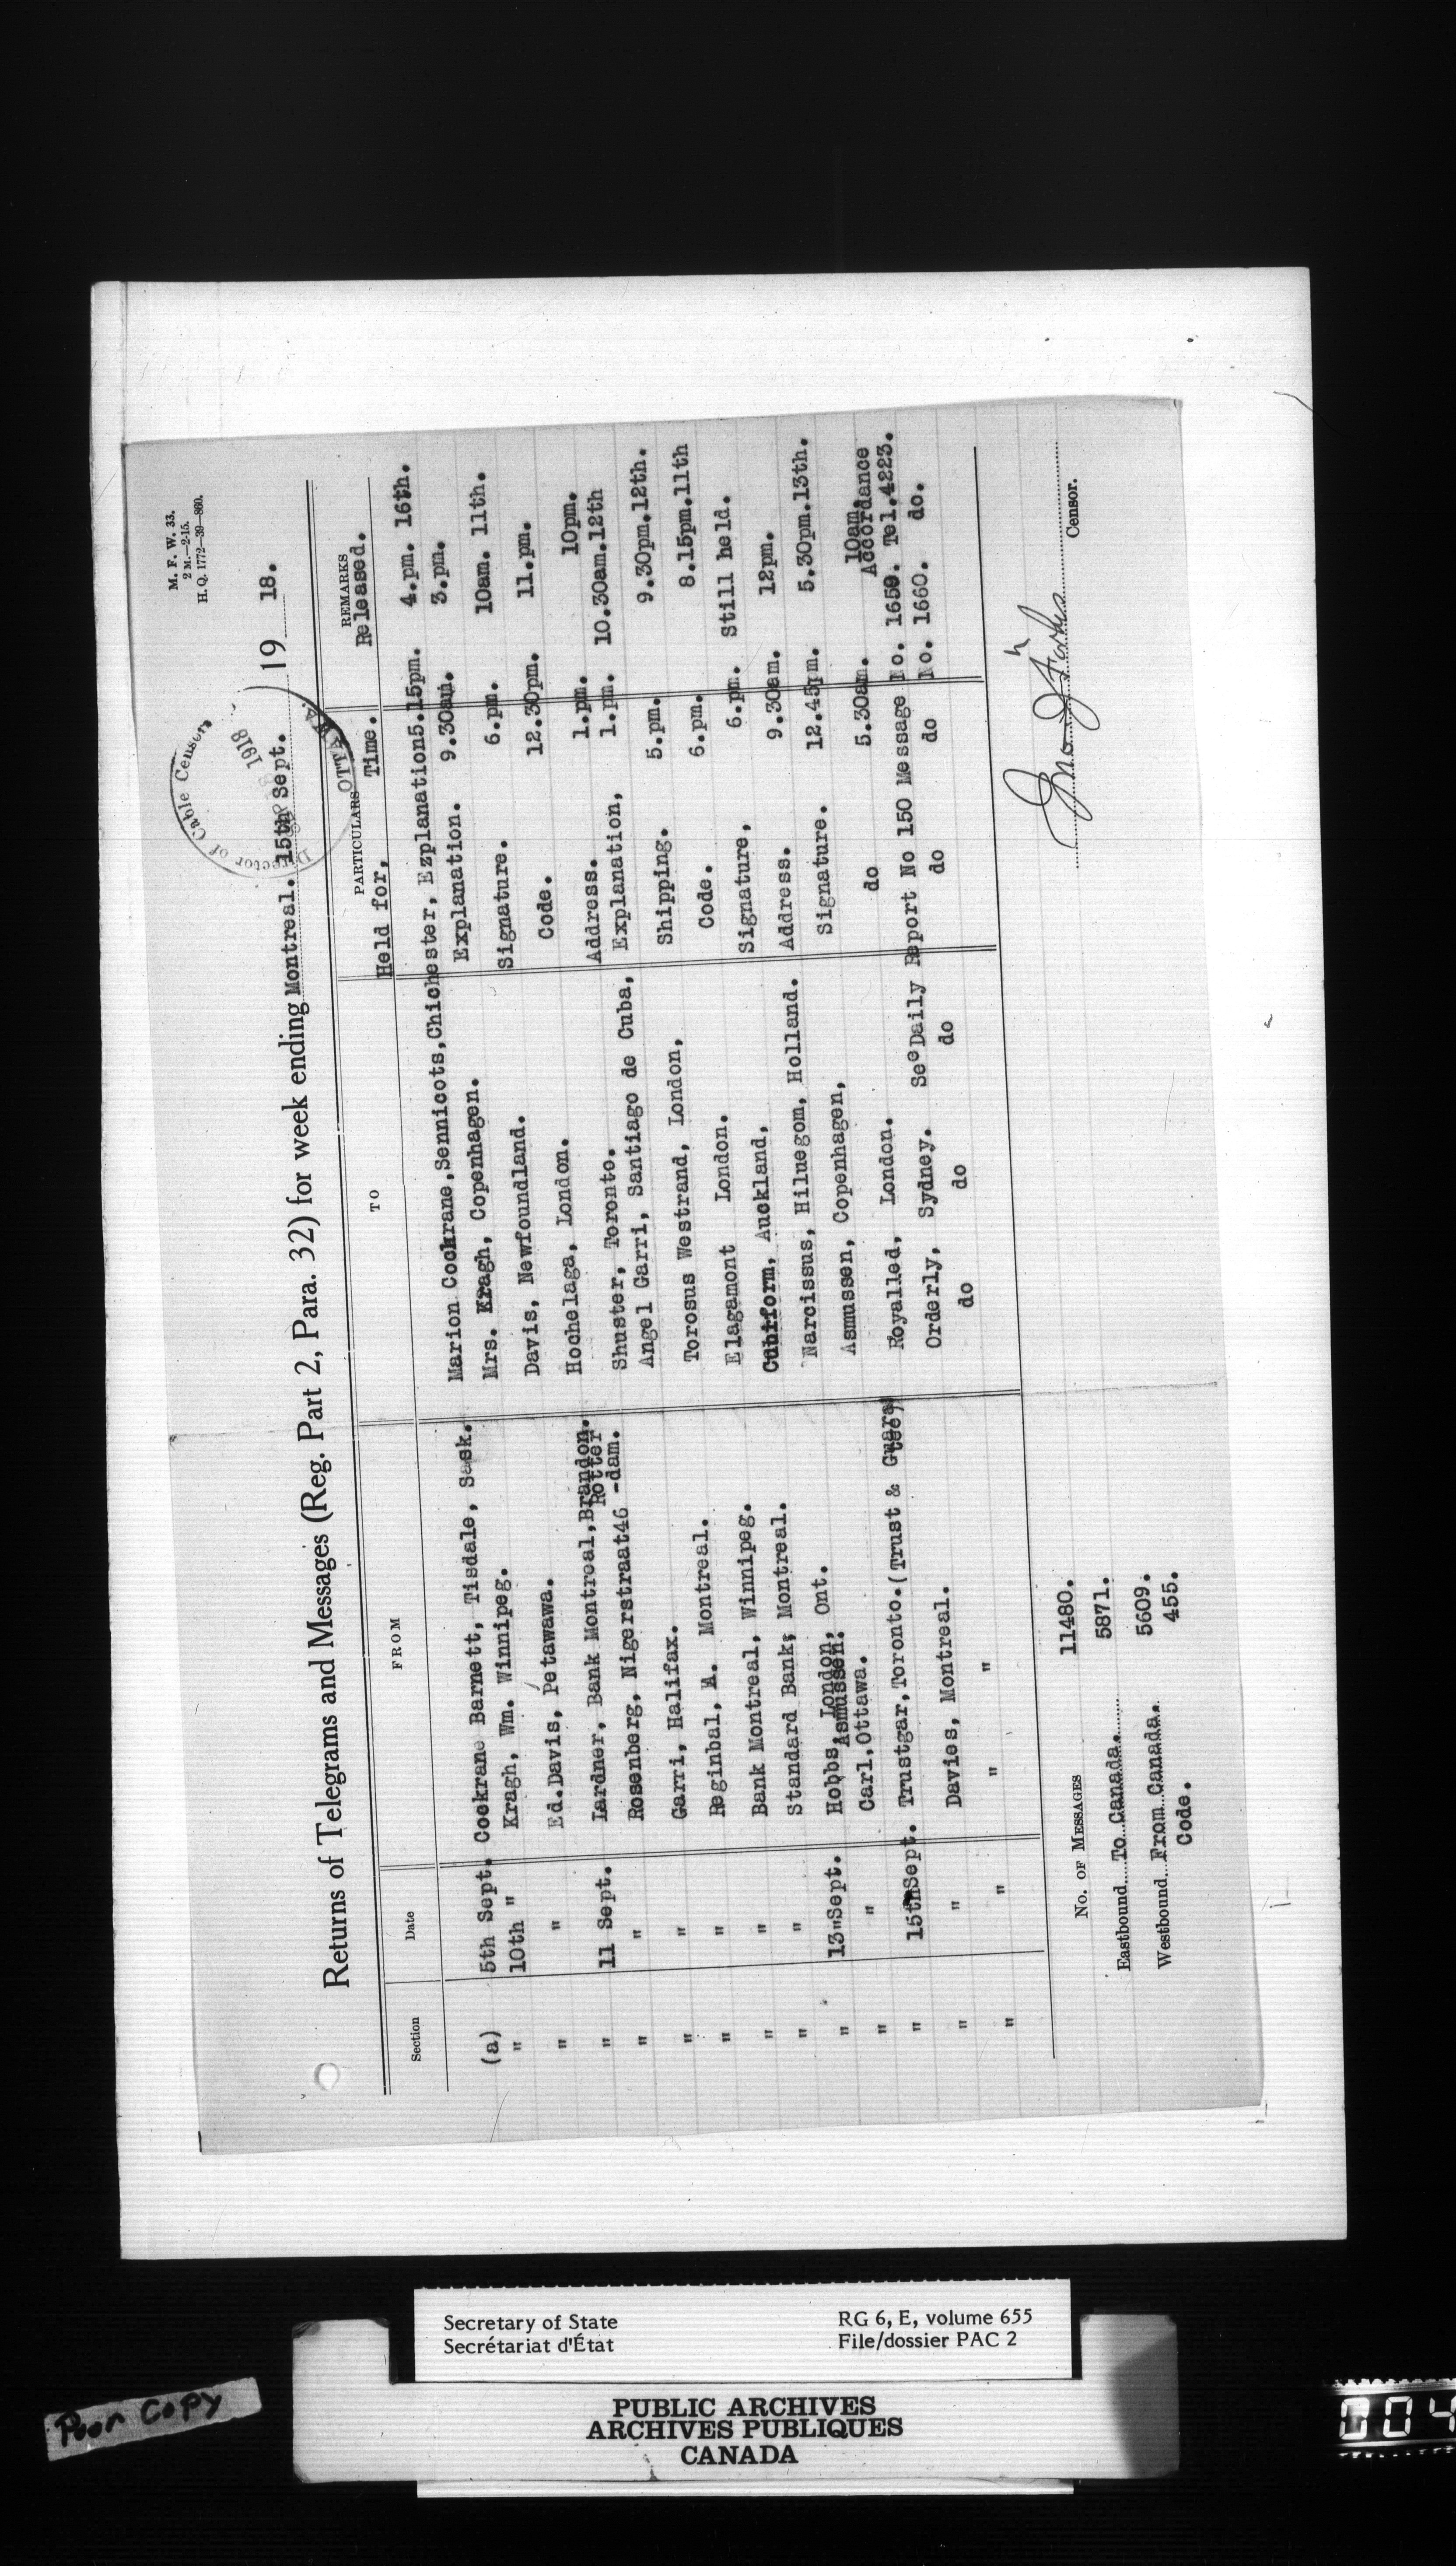 M. F. W. 33.
2 M.—2-15.
H. Q. 1772—39—860.
Director of Cable Censor
1918
OTTAWA.
Returns of Telegrams and Messages (Reg. Part 2, Para. 32) for week ending Montreal. 15th Sept. 19 18.
Section Date FROM TO PARTICULARS REMARKS
Held for, Time. Released.
(a) 5th Sept. Cockrane Barnett, Tisdale, Sask. Marion Cockrane,Sennicots,Chichester, Ezplanation5.15pm. 4.pm. 16th.
" 10th " Kragh, Wm. Winnipeg. Mrs. Kragh, Copenhagen. Explanation. 9.30am. 3.pm.
" " Ed.Davis, Petawawa. Davis, Newfoundland. Signature. 6.pm. 10am. 11th.
" 11 Sept. Lardner, Bank Montreal,Brandon. Hochelaga, London. Code. 12.30pm. 11.pm.
" " Rosenberg, Nigerstraat46 Rotter-dam. Shuster, Toronto. Address. 1.pm. 10pm.
" " Garri, Halifax. Angel Garri, Santiago de Cuba, Explanation, 1.pm. 10.30am.12th
" " Reginbal, M. Montreal. Torosus Westrand, London, Shipping. 5.pm. 9.30pm.12th.
" " Bank Montreal, Winnipeg. Elagamont London. Code. 6.pm. 8.15pm.11th
" " Standard Bank, Montreal. Cubiform, Auckland, Signature, 6.pm. Still held.
" 13"Sept. Hobbs, London, Ont. Narcissus, Hiluegom, Holland. Address. 9.30am. 12pm.
" " Carl,Ottawa. Asmussen. Asmussen, Copenhagen, Signature. 12.45pm. 5.30pm.13th.
" 15thSept. Trustgar,Toronto.(Trust & Guarantee) Royalled, London. do 5.30am. 10am.
" " Davies, Montreal. Orderly, Sydney. See Daily Report No 150 Message No. 1659. Accordance Tel.4223.
" " " " do do do do do No. 1660. do.
No. of Messages 11480.
Eastbound To Canada. 5871.
Westbound From Canada. 5609.
Code. 455.
Censor.
Secretary of State
Secrétariat d'État
RG 6, E, volume 655
File/dossier PAC 2
PUBLIC ARCHIVES
ARCHIVES PUBLIQUES
CANADA
Poor Copy
004